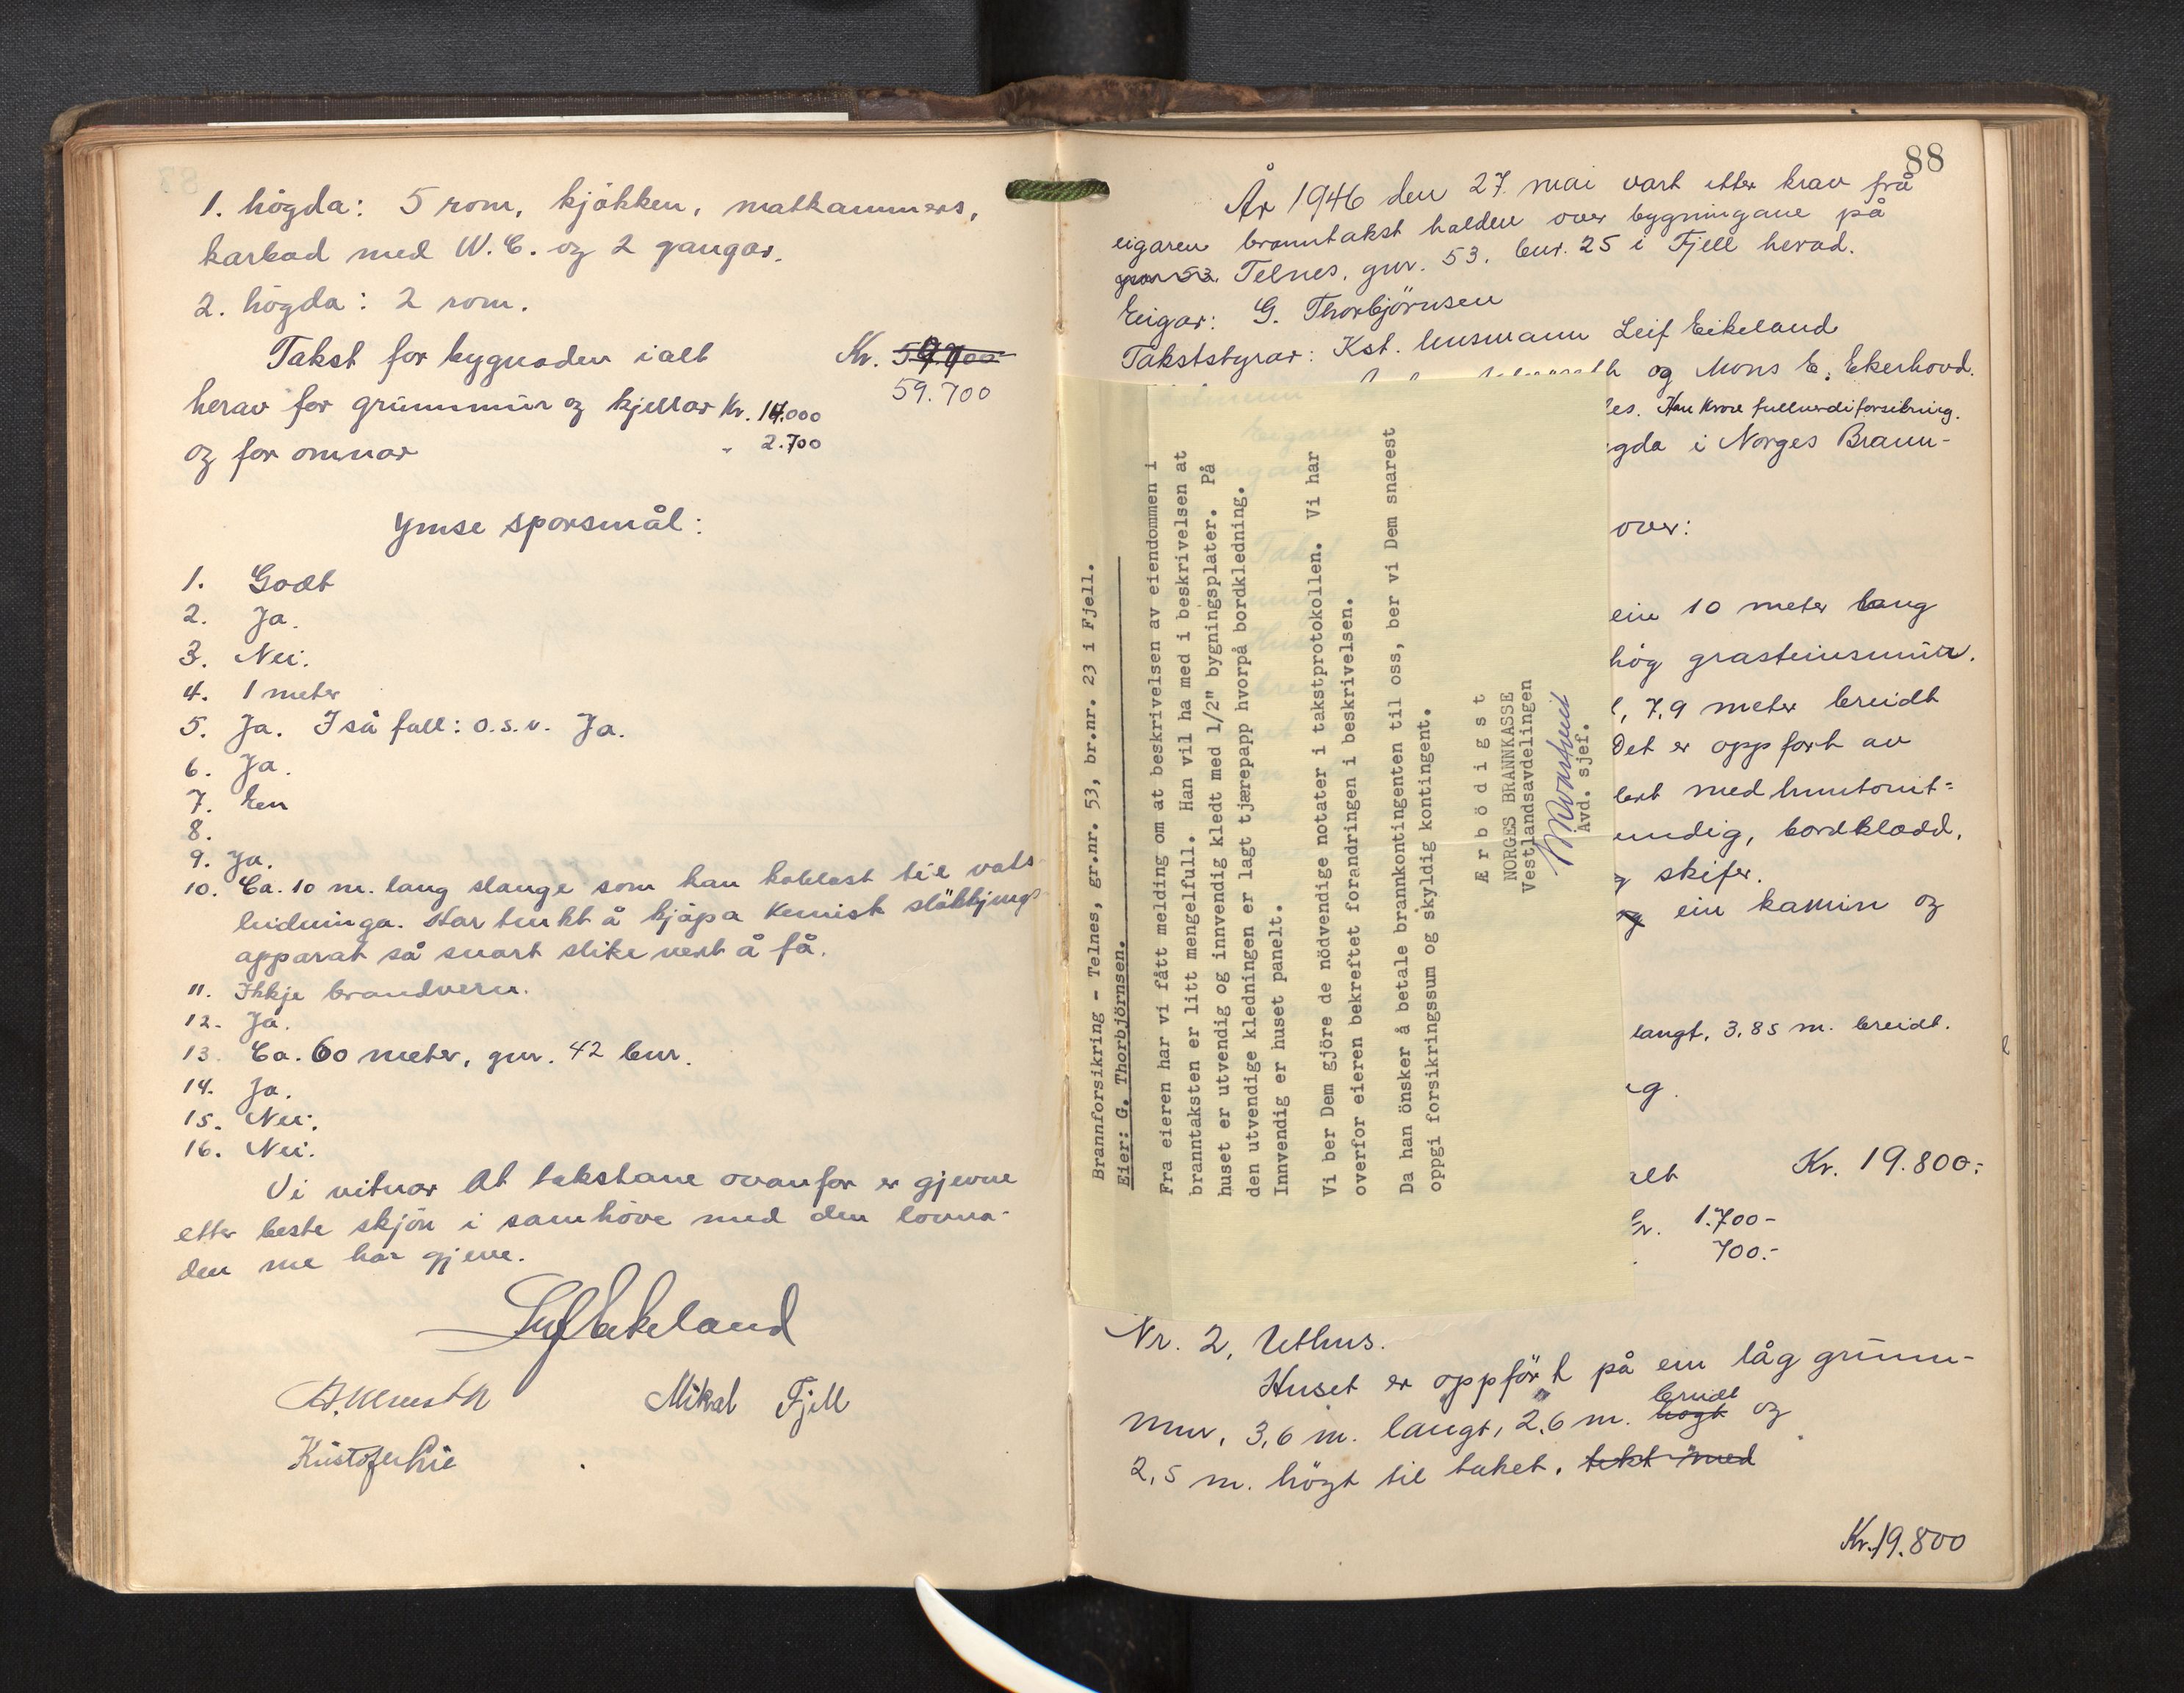 1. högda: 5 rom, kjökken, matkammers,
karbad med W.C. og 2 gangar.
2. högda: 2 rom.
Takst for bygnaden ialt Kr.
59.700
herav for grunnmur og kjellar Kr. 14.000
og for omnar " 2.700
Ymse sporsmål:
1. Godt
2. Ja.
3. Nei.
4. 1 meter
5. Ja. I så fall: o.s.v. Ja.
6. Ja.
7. Ein
8.
9. Ja.
10. Ca. 10 m. lang slange som kan koblast til vats-
leidninga. Har tenkt å kjöpa kemisk slökkjings-
apparat så snart slike vert å få.
11. Ikkje brandvern.
12. Ja.
13. Ca. 60 meter, gnr. 42 bnr.
14. Ja.
15. Nei.
16. Nei.
Vi vitnar at takstane ovanfor er gjevne
etter beste skjön i samhöve med den lovna-
den me har gjeve.
Leif Eikeland
Mikal Fjell
Kristofer Lie
88
År 1946 den 27. mai vart etter krav frå
eigaren branntakst halden over bygningane på
gnr 53. Telnes, gnr. 53. bnr. 25 i Fjell herad.
Eigar: G. Thorbjörnsen
Takststyrar: Kst. lensmann Leif Eikeland
og Mons E. Ekerhovd.
Han krove fullverdiforsikring.
gda i Norges Brann-
over:
ein 10 meter lang
hög grasteinsmur.
7,9 meter breidt
Det er oppfort av
med huntonit=
undig, bordkledd,
skifer.
og ein kamin og
langt, 3,85 m. breidt.
alt Kr. 19.800,-
Kr. 1.700-
700.-
Brannforsikring - Telnes, gr.nr. 53, br.nr. 23 i Fjell.
Eier: G. Thorbjörnsen.
Fra eieren har vi fått melding om at beskrivelsen av eiendommen i
branntaksten er litt mengelfull. Han vil ha med i beskrivelsen at
huset er utvendig og innvendig kledt med 1/2" bygningsplater. På
den utvendige kledningen er lagt tjærepapp hvorpå bordkledning.
Innvendig er huset panelt.
Vi ber Dem gjöre de nödvendige notater i takstprotokollen. Vi har
overfor eieren bekreftet forandringen i beskrivelsen.
Da han önsker å betale brannkontingenten til oss, ber vi Dem snarest
oppgi forsikringssum og skyldig kontingent.
Ærbödigst
NORGES BRANNKASSE
Vestlandsavdelingen
Avd. sjef.
Nr. 2, Uthus.
Huset er oppfört på ein låg grunn-
mur, 3,6 m. langt, 2,6 m. högt breidt og
2,5 m. högt til taket. tekt med
Kr. 19.800